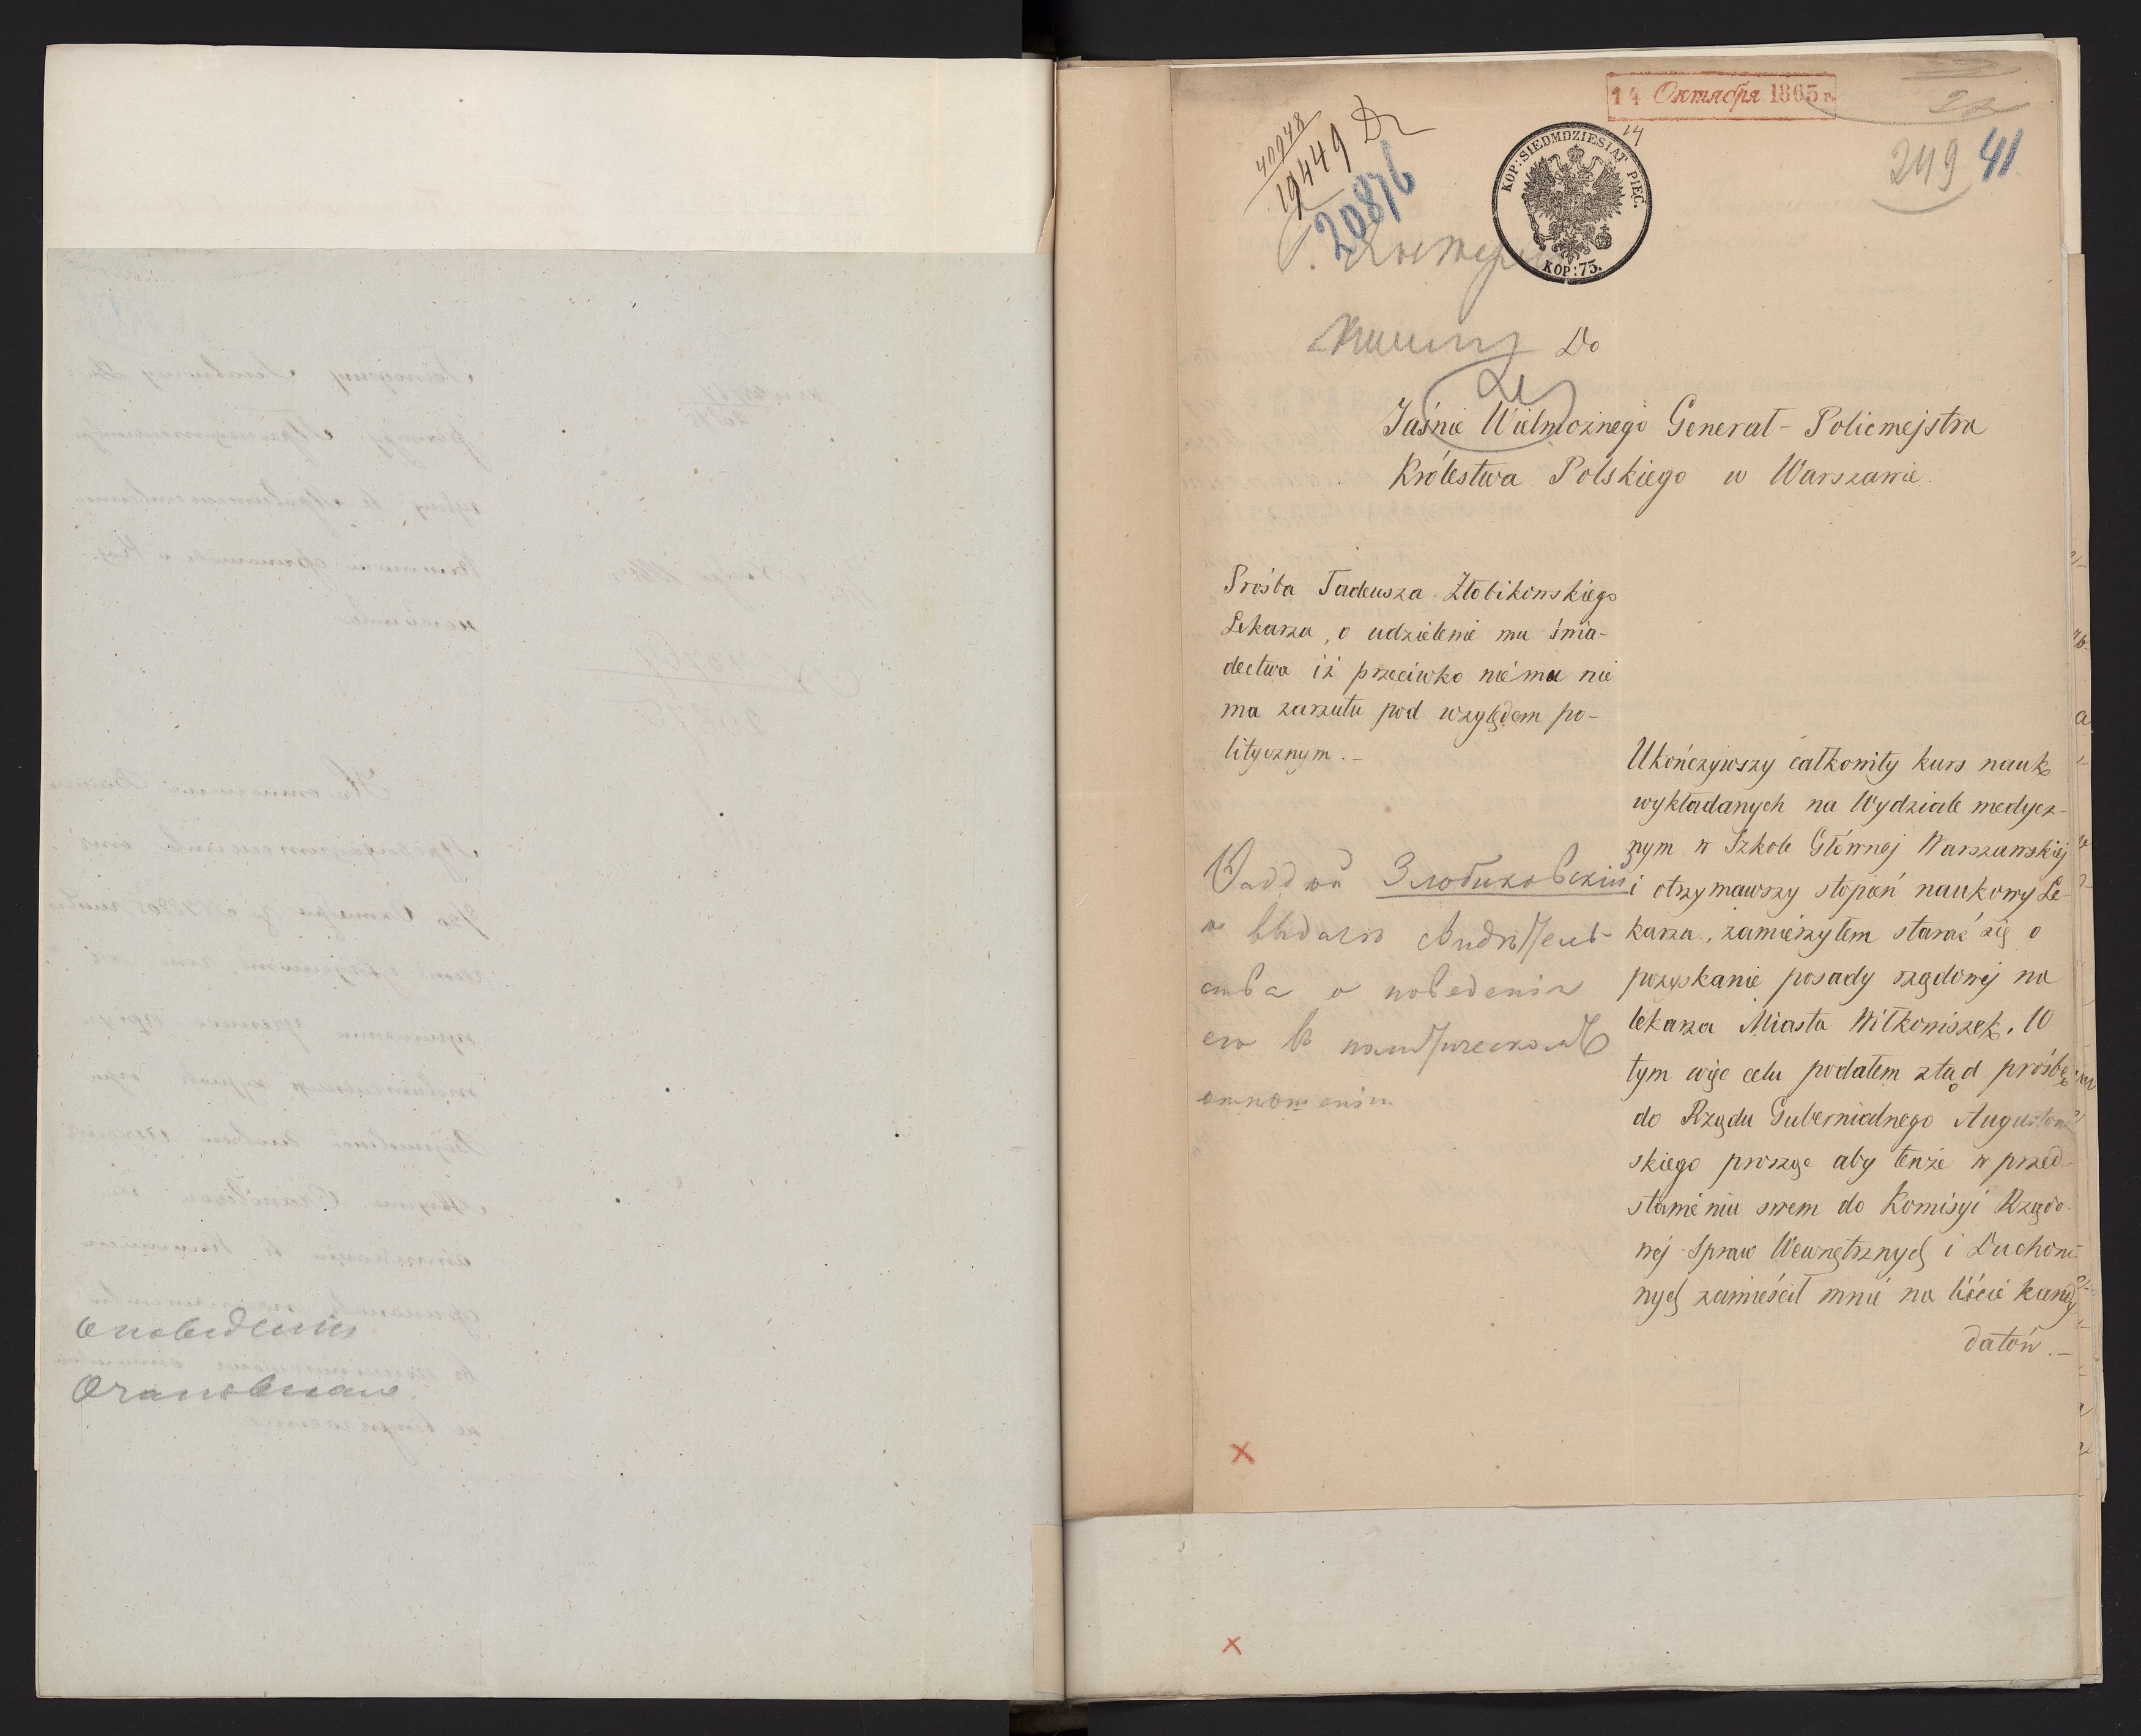 14 Октября 1865 г.
14
40948
19449
20876
249 41
KOP: SIEDMDZIESIĄT PIĘĆ.
KOP: 75.
Do
Jaśnie Wielmożnego Generał-Policmejstra
Królestwa Polskiego w Warszawie.
Prośba Tadeusza Złobikowskiego
Lekarza, o udzielenie mu świa-
dectwa iż przeciwko niemu nie
ma zarzutu pod względem po-
litycznym.-
Ukończywszy całkowity kurs nauk
wykładanych na Wydziale medycz-
nym w Szkole Głównej Warszawskiej
i otrzymawszy stopień naukowy Le-
karza, zamierzyłem starać się o
pozyskanie posady rządowej na
lekarza Miasta Wiłkowiszek. W
tym więc celu podałem ztąd prośbę
do Rządu Gubernialnego Augustow
skiego prosząc aby tenże w przed-
stawieniu swem do Komisyi Rządo
wej Spraw Wewnętrznych i Duchow-
nych zamieścił mnie na liście kandy
datów.-
Злобиковский
о выдаче свидѣтель-
ства о поведении
его въ политическомъ
отношении
о поведении